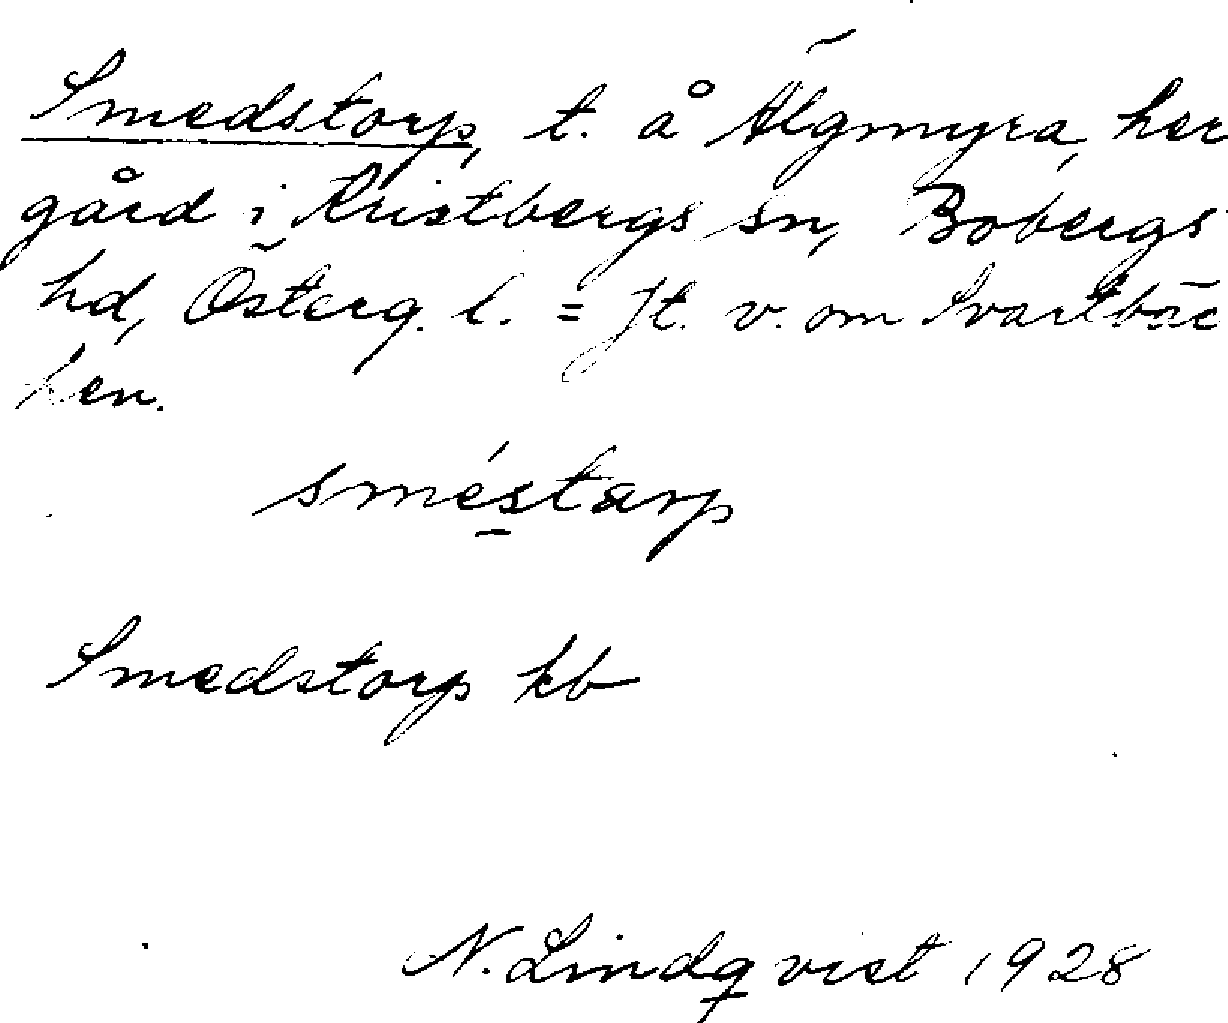 Smedstorp, t. å Älgmyra, her
gård i Kristbergs sn, Bobergs
hd, Österg. l. = Jt. v. om Svartbäc
ken.
sméstarp
Smedstorp kb
N. Lindqvist 1928